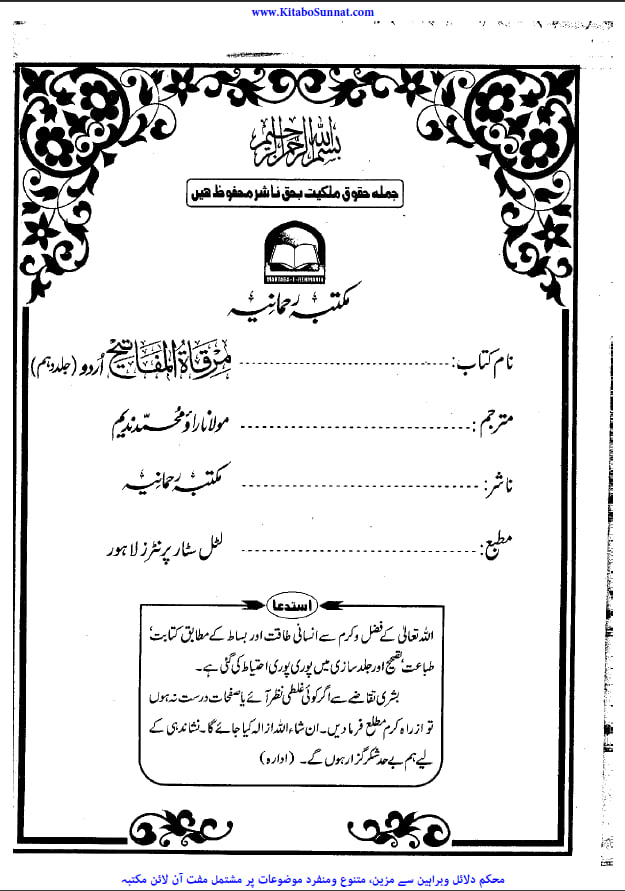 www.KitaboSunnat.com
بسم الله الرحمن الرحيم
جملہ حقوق ملکیت بحق ناشر محفوظ ھیں
MAKTABA-E-REHMANIA
مکتبہ رحمانیہ
نام کتاب: مرقاۃ المفاتیح اُردو (جلد دہم)
مترجم: مولانا راؤ محمّد ندیم
ناشر: مکتبہ رحمانیہ
مطبع: لٹل سٹار پرنٹرز لاہور
استدعا
اللہ تعالیٰ کے فضل و کرم سے انسانی طاقت اور بساط کے مطابق کتابت،
طباعت، تصحیح اور جلد سازی میں پوری پوری احتیاط کی گئی ہے۔
بشری تقاضے سے اگر کوئی غلطی نظر آئے یا صفحات درست نہ ہوں
تو ازراہ کرم مطلع فرما دیں۔ ان شاء اللہ ازالہ کیا جائے گا۔ نشاندہی کے
لیے ہم بے حد شکر گزار ہوں گے۔ (ادارہ)
محکم دلائل وبراہین سے مزین، متنوع ومنفرد موضوعات پر مشتمل مفت آن لائن مکتبہ